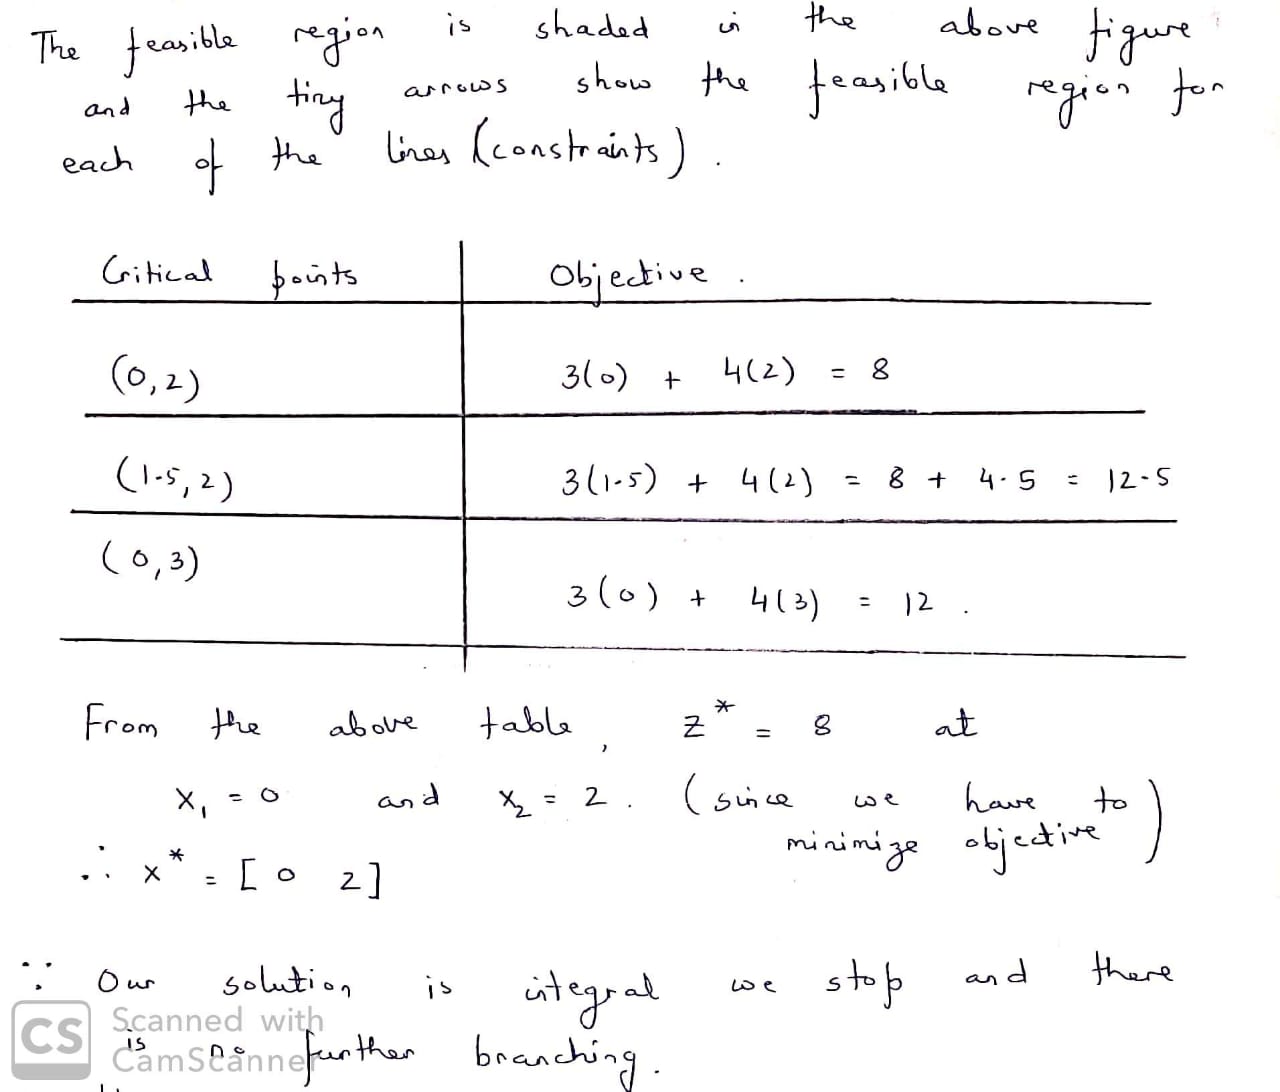 The feasible region is shaded in the above figure
and the tiny arrows show the feasible region for
each of the lines (constraints).
Critical points Objective.
(0,2) 3(0) + 4(2) = 8
(1.5,2) 3(1.5) + 4(2) = 8 + 4.5 = 12.5
(0,3)
3(0) + 4(3) = 12.
From the above table, z* = 8 at
x₁ = 0 and x₂ = 2. (since we have to
minimize objective)
∴ x* = [0 2]
∵ Our solution is integral we stop and there
is no further branching.
CS Scanned with
CamScanner